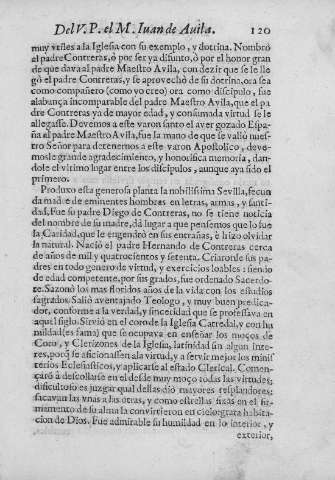 Del V. P. el M. Iuan de Auila. 120
muy vtiles a la Iglesia con su exemplo, y dotrina. Nombrò
el padre Contreras, ò por ser ya difunto, ò por el honor gran
de que daua al padre Maestro Auila, con dezir que se le lle
gò el padre Contreras, y se aprouechò de su dotrina, ora sea
como compañero (como yo creo) ora como discipulo, fue
alabança incomparable del padre Maestro Auila, que el pa
dre Contreras ya de mayor edad, y consumada virtud se le
allegasse. Deuemos a este varon santo el auer gozado Espa
ña al padre Maestro Auila, fue la mano de que se valiò nues-
tro Señor para detenernos a este varon Apostolico, deue-
mosle grande agradecimiento, y honorifica memoria, dan-
dole el vltimo lugar entre los discipulos, aunque aya sido el
primero.
Produxo esta generosa planta la nobilissima Seuilla, fecun
da madre de eminentes hombres en letras, armas, y santi-
dad. Fue su padre Diego de Contreras, no se tiene noticia
del nombre de su madre, dà lugar a que pensemos que lo fue
la Caridad, que le engendrò en sus entrañas, è hizo oluidar
la natural. Naciò el padre Hernando de Contreras cerca
de años de mil y quatrocientos y setenta. Criaronle sus pa-
dres en todo genero de virtud, y exercicios loables: siendo
de edad competente, por sus grados, fue ordenado Sacerdo-
te. Sazonò los mas floridos años de la vida con los estudios
sagrados. Saliò auentajado Teologo, y muy buen predica-
dor, conforme a la verdad, y sinceridad que se professaua en
aquel siglo. Siruiò en el coro de la Iglesia Catredal, y con hu
mildad (es fama) que se ocupaua en enseñar los moços de
Coro, y Clerizones de la Iglesia, latinidad sin algun inte-
res, porq̃ se aficionassen a la virtud, y a seruir mejor los minis
terios Eclesiasticos, y aplicarse al estado Clerical. Comen-
çarò a descollarse en el desde muy moço todas las virtudes;
dificultoso es juzgar qual dellas diò mayores resplandores;
sacauan las vnas a las otras, y como estrellas fixas en el fir-
mamento de su alma la conuirtieron en cielo: grata habita-
cion de Dios. Fue admirable su humildad en lo interior, y
exterior,